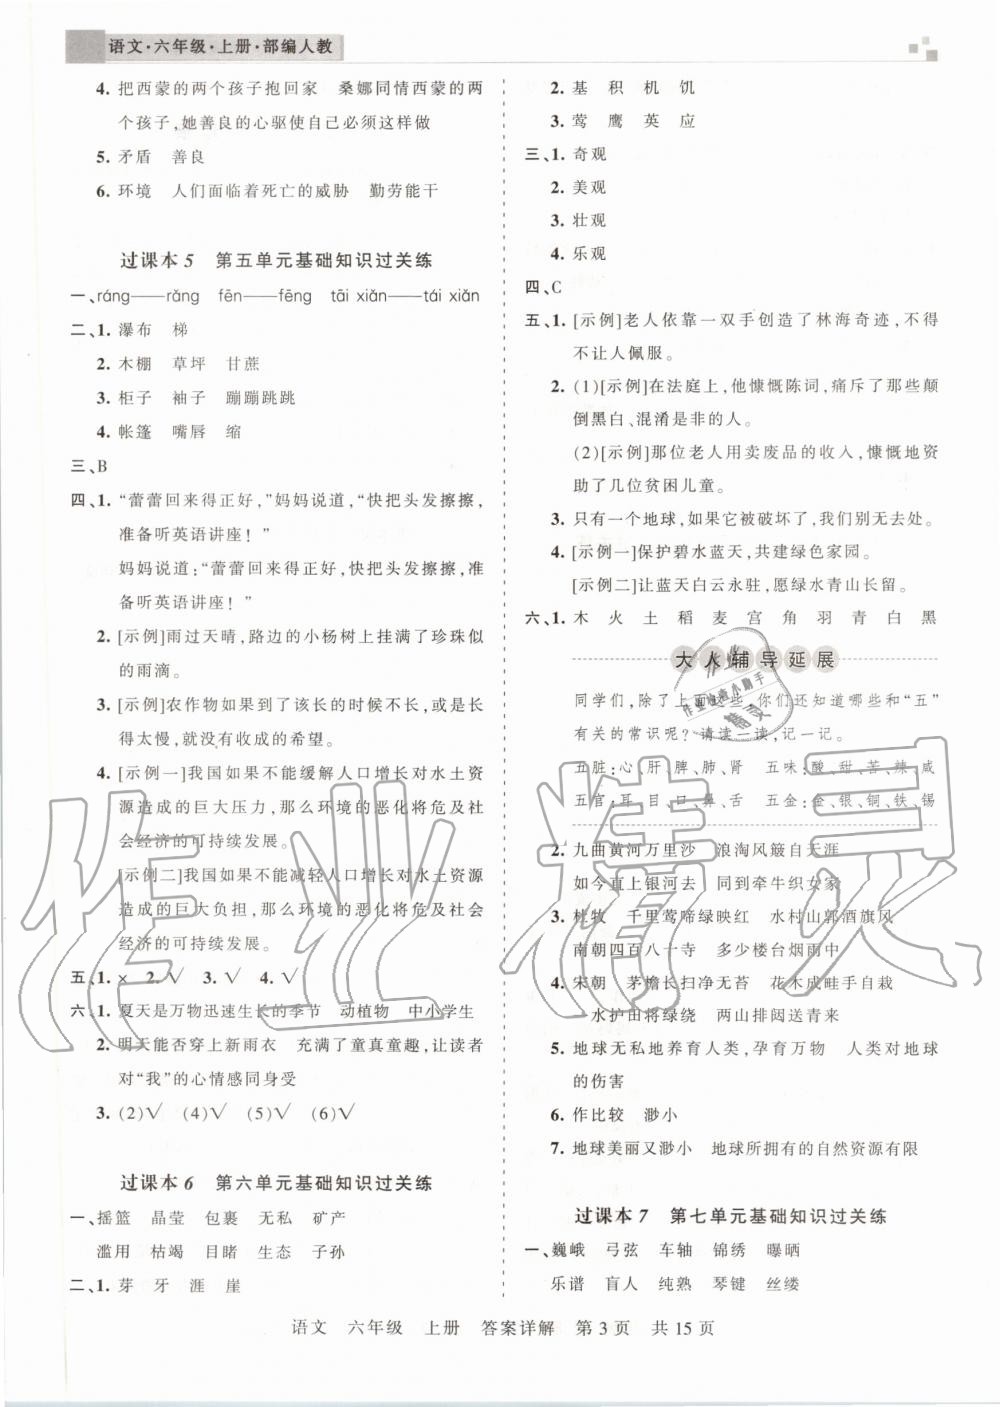 语文·六年级·上册·部编人教
4. 把西蒙的两个孩子抱回家 桑娜同情西蒙的两
个孩子,她善良的心驱使自己必须这样做
5. 矛盾 善良
6. 环境 人们面临着死亡的威胁 勤劳能干
过课本5 第五单元基础知识过关练
一、ráng——rǎng fēn——fēng tāi xiǎn——tái xiǎn
二、1. 瀑布 梯
2. 木棚 草坪 甘蔗
3. 柜子 袖子 蹦蹦跳跳
4. 帐篷 嘴唇 缩
三、B
四、1. “蕾蕾回来得正好,”妈妈说道,“快把头发擦擦,
准备听英语讲座!”
妈妈说道:“蕾蕾回来得正好,快把头发擦擦,准
备听英语讲座!”
2. [示例]雨过天晴,路边的小杨树上挂满了珍珠似
的雨滴。
3. [示例]农作物如果到了该长的时候不长,或是长
得太慢,就没有收成的希望。
4. [示例一]我国如果不能缓解人口增长对水土资
源造成的巨大压力,那么环境的恶化将危及社
会经济的可持续发展。
[示例二]我国如果不能减轻人口增长对水土资源
造成的巨大负担,那么环境的恶化将危及社会
经济的可持续发展。
五、1. × 2. √ 3. √ 4. √
六、1. 夏天是万物迅速生长的季节 动植物 中小学生
2. 明天能否穿上新雨衣 充满了童真童趣,让读者
对“我”的心情感同身受
3. (2)√ (4)√ (5)√ (6)√
过课本6 第六单元基础知识过关练
一、摇篮 晶莹 包裹 无私 矿产
滥用 枯竭 目睹 生态 子孙
二、1. 芽 牙 涯 崖
2. 基 积 机 饥
3. 莺 鹰 英 应
三、1. 奇观
2. 美观
3. 壮观
4. 乐观
四、C
五、1. [示例]老人依靠一双手创造了林海奇迹,不得
不让人佩服。
2. (1)[示例]在法庭上,他慷慨陈词,痛斥了那些颠
倒黑白、混淆是非的人。
(2)[示例]那位老人用卖废品的收入,慷慨地资
助了几位贫困儿童。
3. 只有一个地球,如果它被破坏了,我们别无去处。
4. [示例一]保护碧水蓝天,共建绿色家园。
[示例二]让蓝天白云永驻,愿绿水青山长留。
六、1. 木 火 土 稻 麦 宫 角 羽 青 白 黑
大人辅导延展
同学们,除了上面这些,你们还知道哪些和“五”
有关的常识呢?请读一读,记一记。
五脏:心、肝、脾、肺、肾 五味:酸、甜、苦、辣、咸
五官:耳、目、口、鼻、舌 五金:金、银、铜、铁、锡
2. 九曲黄河万里沙 浪淘风簸自天涯
如今直上银河去 同到牵牛织女家
3. 杜牧 千里莺啼绿映红 水村山郭酒旗风
南朝四百八十寺 多少楼台烟雨中
4. 宋朝 茅檐长扫净无苔 花木成畦手自栽
一水护田将绿绕 两山排闼送青来
5. 地球无私地养育人类,孕育万物 人类对地球
的伤害
6. 作比较 渺小
7. 地球美丽又渺小 地球所拥有的自然资源有限
过课本7 第七单元基础知识过关练
一、巍峨 弓弦 车轴 锦绣 曝晒
乐谱 盲人 纯熟 琴键 丝缕
语文 六年级 上册 答案详解 第3页 共15页
作业精灵